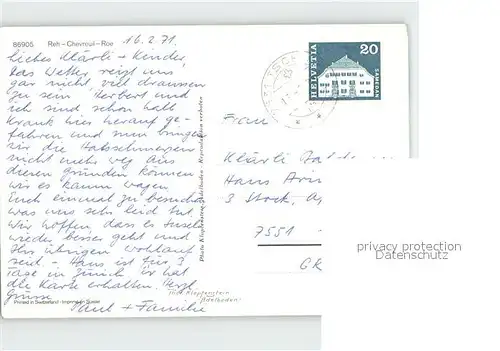 86905 Reh - Chevreuil - Roe
16.2.71.
Liebes Klärli + Kinder,
Das Wetter reizt uns
gar nicht viel draussen
zu sein. Herbert und
ich sind schon halb
krank hier herauf ge-
fahren und nun bringen
wir die Halsschmerzen
nicht mehr weg. Aus
diesen gründen können
wir es kaum wagen
Euch einmal zu besuchen
was uns sehr leid tut.
Wir hoffen, dass es
wieder besser geht und
Ihr übrigen wohlauf
seid. - Hans ist für 3
Tage in Zürich. Er hat
die Karte erhalten. Herzl.
Grüsse
Paul + Familie
Printed in Switzerland - Imprimé en Suisse
Photo Klopfenstein, Adelboden - Reproduktion verboten
HELVETIA
20
SAMEDAN
Frau
Klärli
Hans
3. Stock,
7551
GR
Klopfenstein
Adelboden
privacy protection
Datenschutz